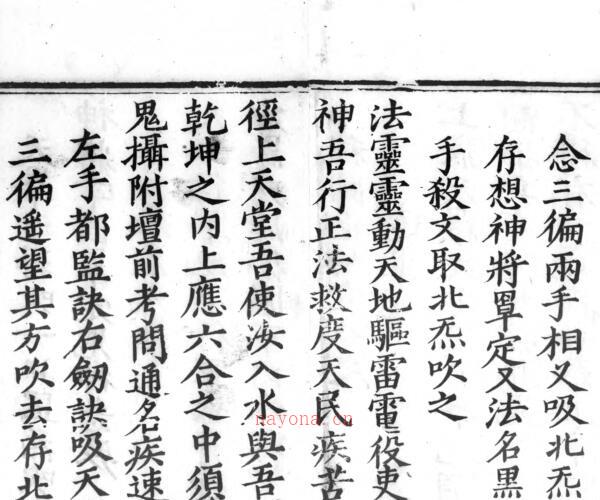 念三徧兩手相叉吸北炁
存想神將罩定又法名黑
手殺文取北炁吹之
法靈靈動天地驅雷電役吏
神吾行正法救度天民疾苦
徑上天堂吾使汝入水與吾
乾坤之内上應六合之中須
鬼攝附壇前考問通名疾速
左手都監訣右劒訣吸天
三徧遥望其方吹去存北
nayona.cn